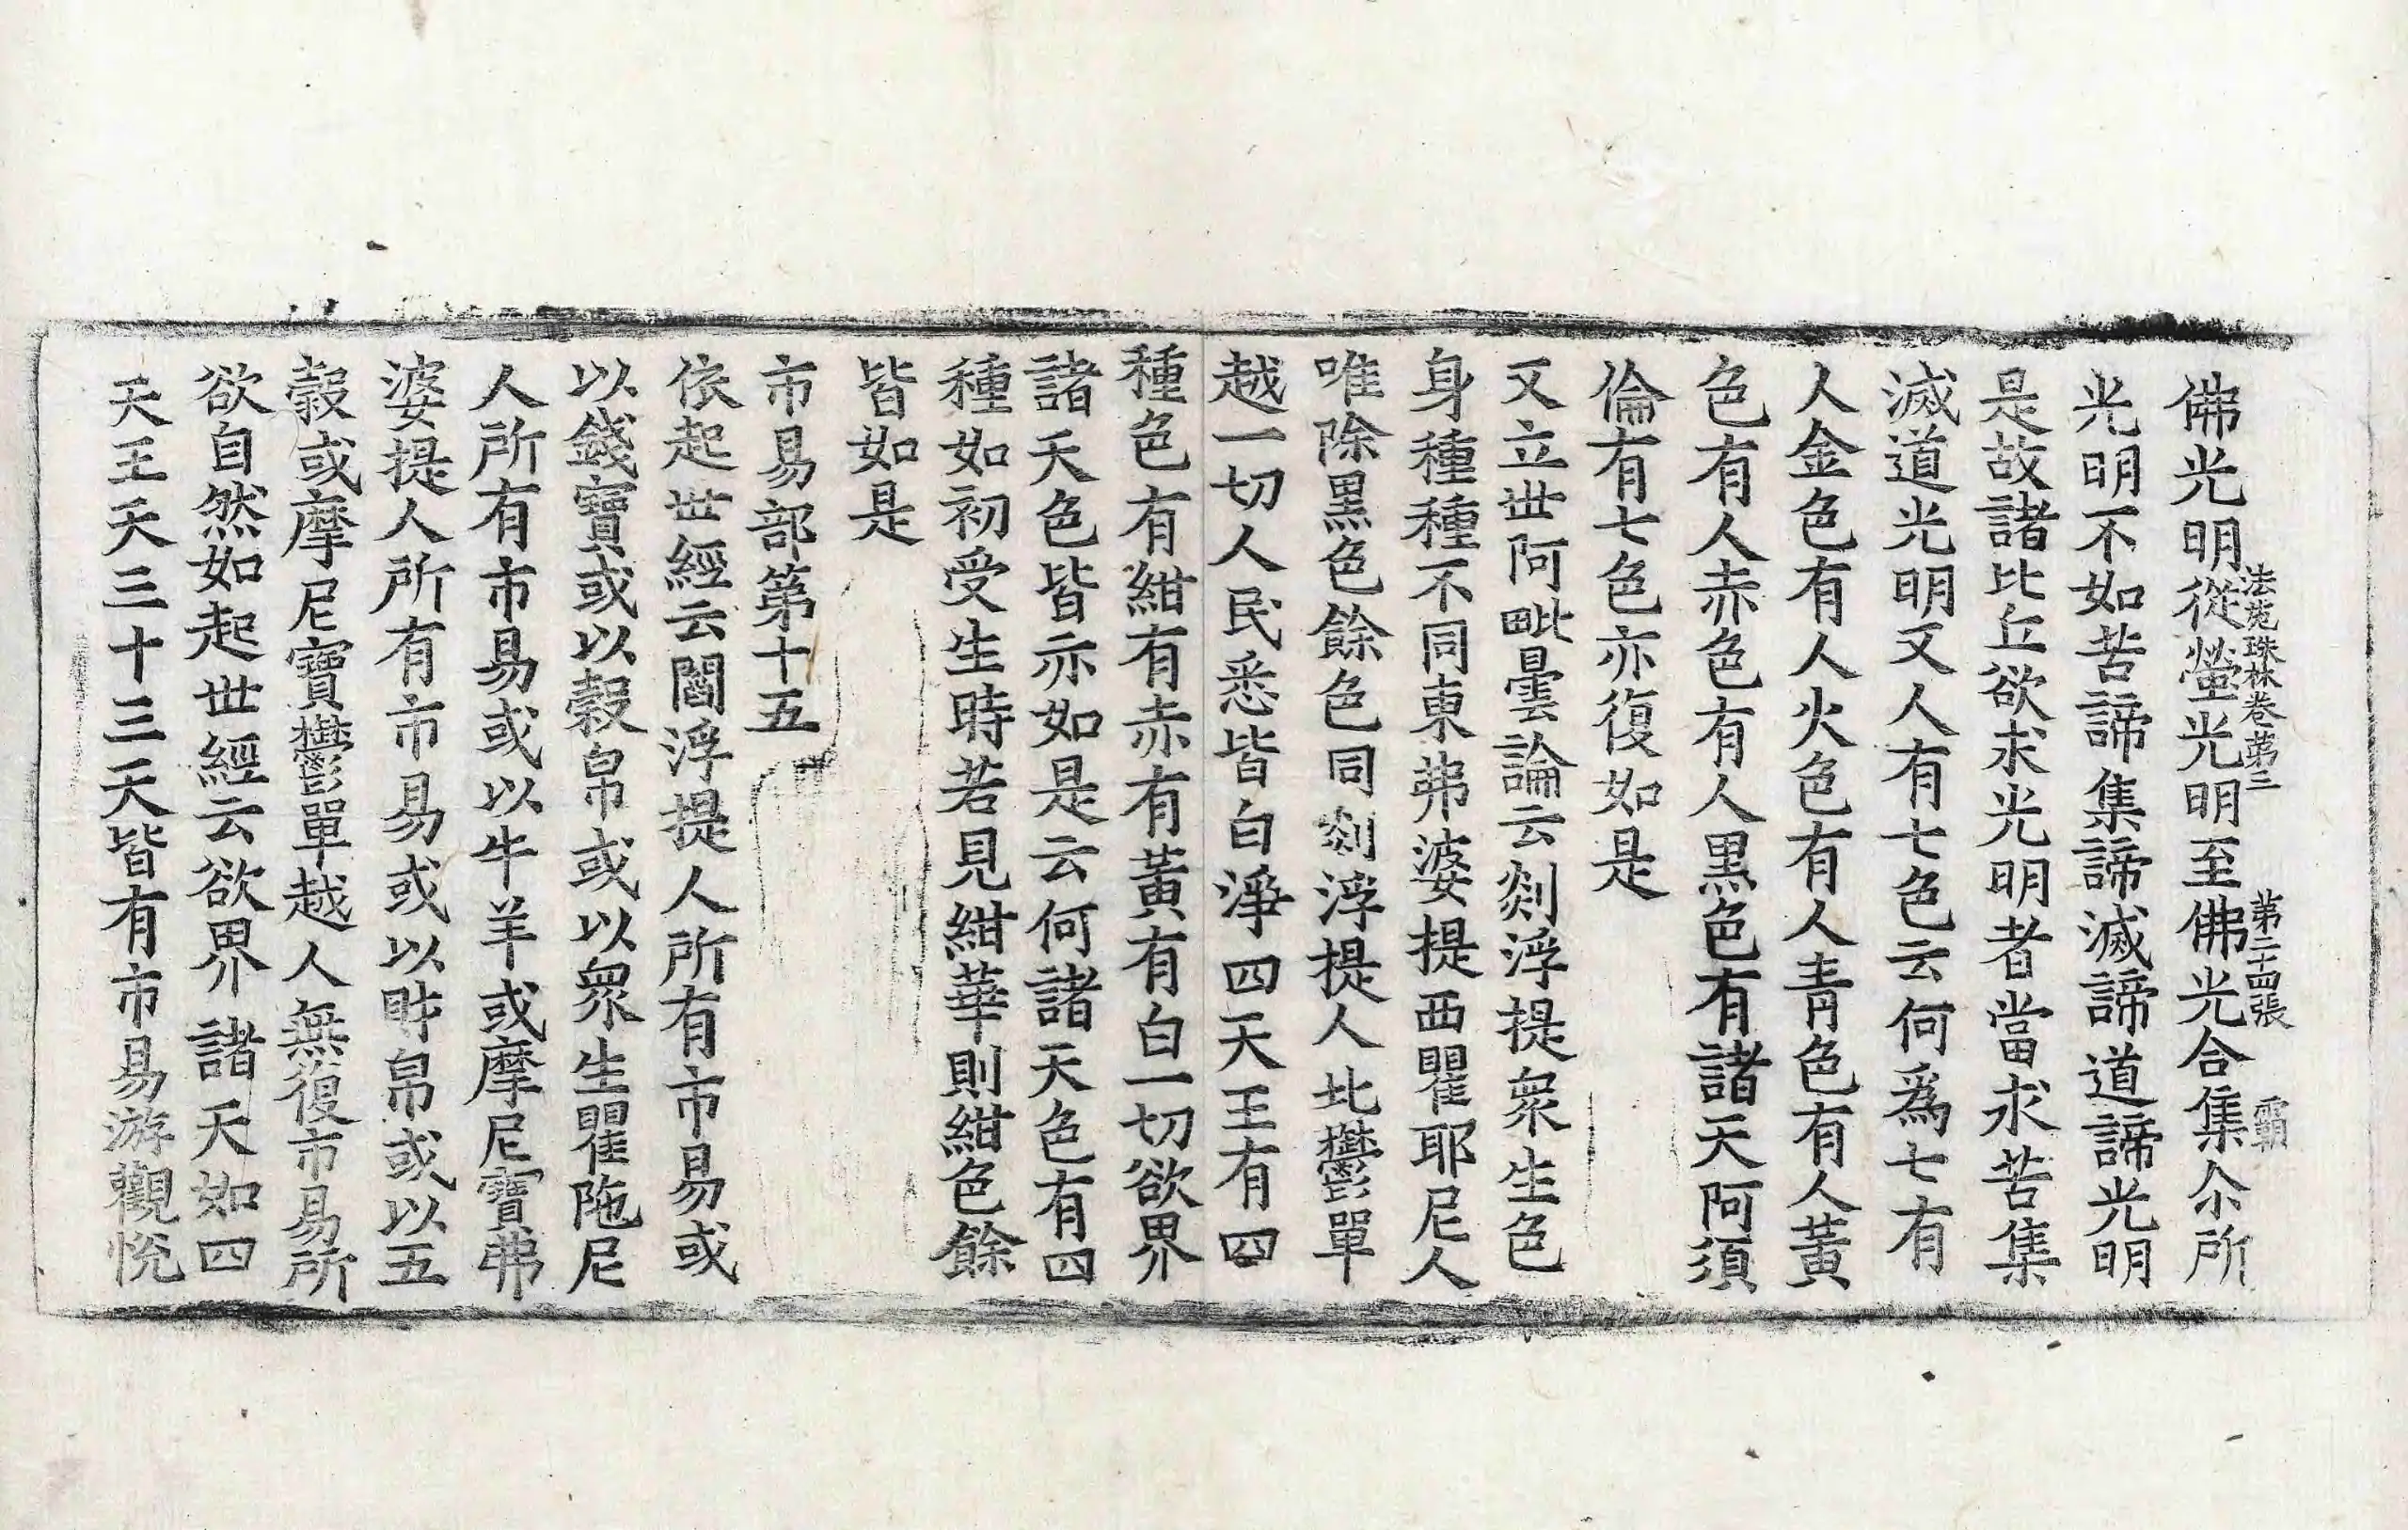 法苑珠林卷第三 第二十四張 霸
佛光明從螢光明至佛光合集尒所
光明不如苦諦集諦滅諦道諦光明
是故諸比丘欲求光明者當求苦集
滅道光明又人有七色云何爲七有
人金色有人火色有人青色有人黃
色有人赤色有人黑色有諸天阿須
倫有七色亦復如是
又立世阿毗曇論云剡浮提衆生色
身種種不同東弗婆提西瞿耶尼人
唯除黑色餘色同剡浮提人北鬱單
越一切人民悉皆白淨四天王有四
種色有紺有赤有黃有白一切欲界
諸天色皆亦如是云何諸天色有四
種如初受生時若見紺華則紺色餘
皆如是
市易部第十五
依起世經云閻浮提人所有市易或
以錢寶或以穀帛或以衆生瞿陁尼
人所有市易或以牛羊或摩尼寶弗
婆提人所有市易或以財帛或以五
穀或摩尼寶鬱單越人無復市易所
欲自然如起世經云欲界諸天如四
天王天三十三天皆有市易游觀悅